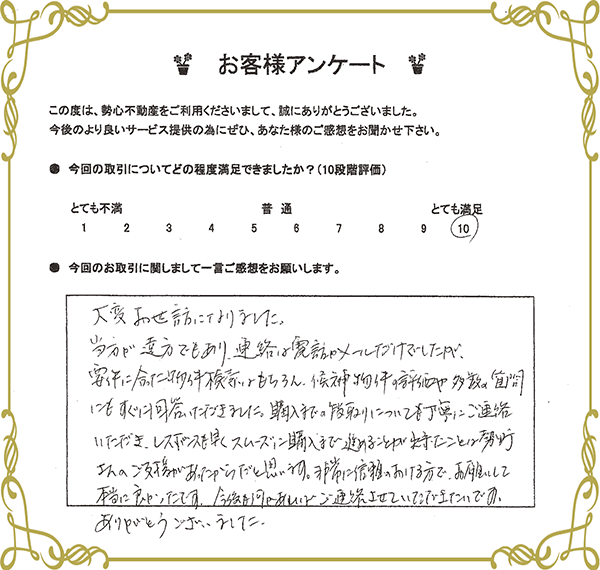 お客様アンケート
この度は、勢心不動産をご利用くださいまして、誠にありがとうございました。
今後のより良いサービス提供の為にぜひ、あなた様のご感想をお聞かせ下さい。
● 今回の取引についてどの程度満足できましたか?(10段階評価)
とても不満 普通 とても満足
1 2 3 4 5 6 7 8 9 10
● 今回のお取引に関しまして一言ご感想をお願いします。
大変お世話になりました。
当方が遠方でもあり、連絡は電話かメールだけでしたが、
要件に合った物件検索はもちろん、候補物件の評価や多数の質問
にもすぐに回答いただきました。購入までの段取りについても丁寧にご連絡
いただき、レスポンスも早くスムーズに購入まで進めることが出来たことは
さんのご支援があったからだと思います。非常に信頼のおける方で、お願いして
本当に良かったです。今後も何かあればご連絡させていただきたいです。
ありがとうございました。